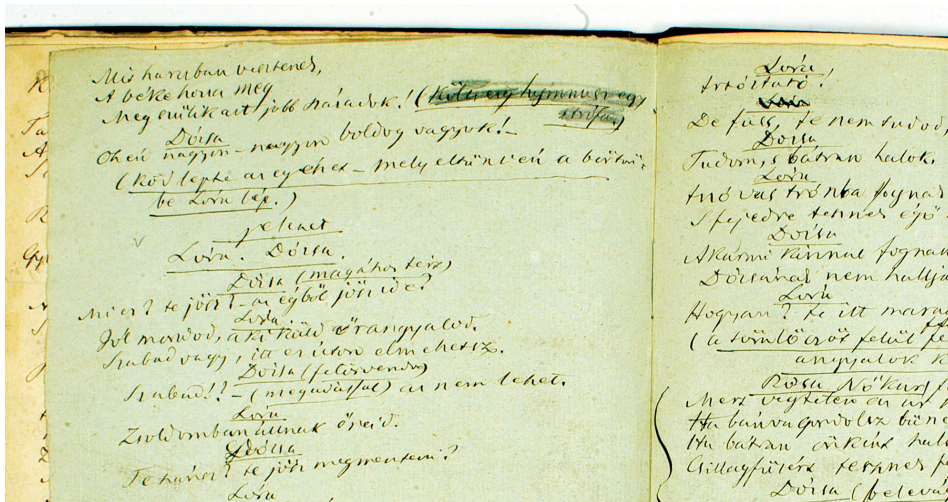 Mis harczban vesztenek,
A béke hona meg
Megenyhít jobb századok! (
Dózsa
Oh én nagyon – nagyon boldog vagyok! –
(köd lepte az egyhet – mely eltünvén a börtön-
be Lóra lép.)
jelenet
Lóra. Dózsa.
Dózsa (magához tér)
Mi ez? te jösz! – az égből jösz ide?
Lóra.
Jól mondod, a ki küld őrangyalod.
Szabad vagy, itt ez úton elmehetsz.
Dózsa (felörvendve)
Szabad!! – (megadással) az nem lehet.
Lóra
Zsoldomban állnak őreid.
Dózsa
Te hánsz? te jösz megmenteni?
Lóra
Lóra
Irtóztató!
De fuss, te nem tudod
Dózsa
Tudom, s bátran halok.
Lóra
Izzó vas trónba fognak
S fejedre tesznek égő
Dózsa
Akármi kínnal fognak
Dózsának nem hallja
Lóra
Hogyan? te itt
(a tömlöczöt felül
angyalok k
Rózsa Nőkar
Mert végtelen az úr
Ha bánva gondolsz bűne
Ha bátran önként hal
Csillagfüzért tesznek
Dózsa (beleva